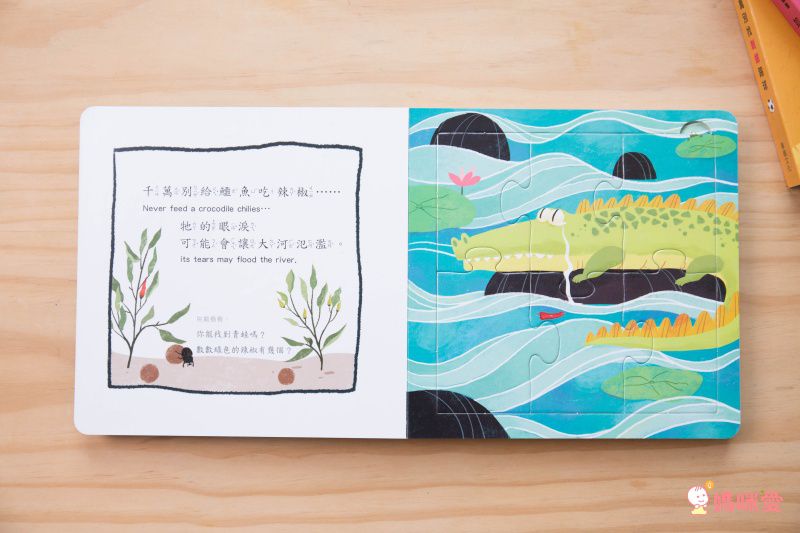 千萬別給鱷魚吃辣椒……
Never feed a crocodile chilies…
牠的眼淚
可能會讓大河氾濫。
its tears may flood the river.
你能找到青蛙嗎？
數數綠色的辣椒有幾個？
媽咪愛